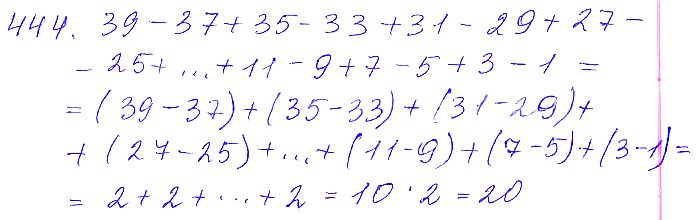 444. 39 - 37 + 35 - 33 + 31 - 29 + 27 -
- 25 + ... + 11 - 9 + 7 - 5 + 3 - 1 =
= (39 - 37) + (35 - 33) + (31 - 29) +
+ (27 - 25) + ... + (11 - 9) + (7 - 5) + (3 - 1) =
= 2 + 2 + ... + 2 = 10 · 2 = 20